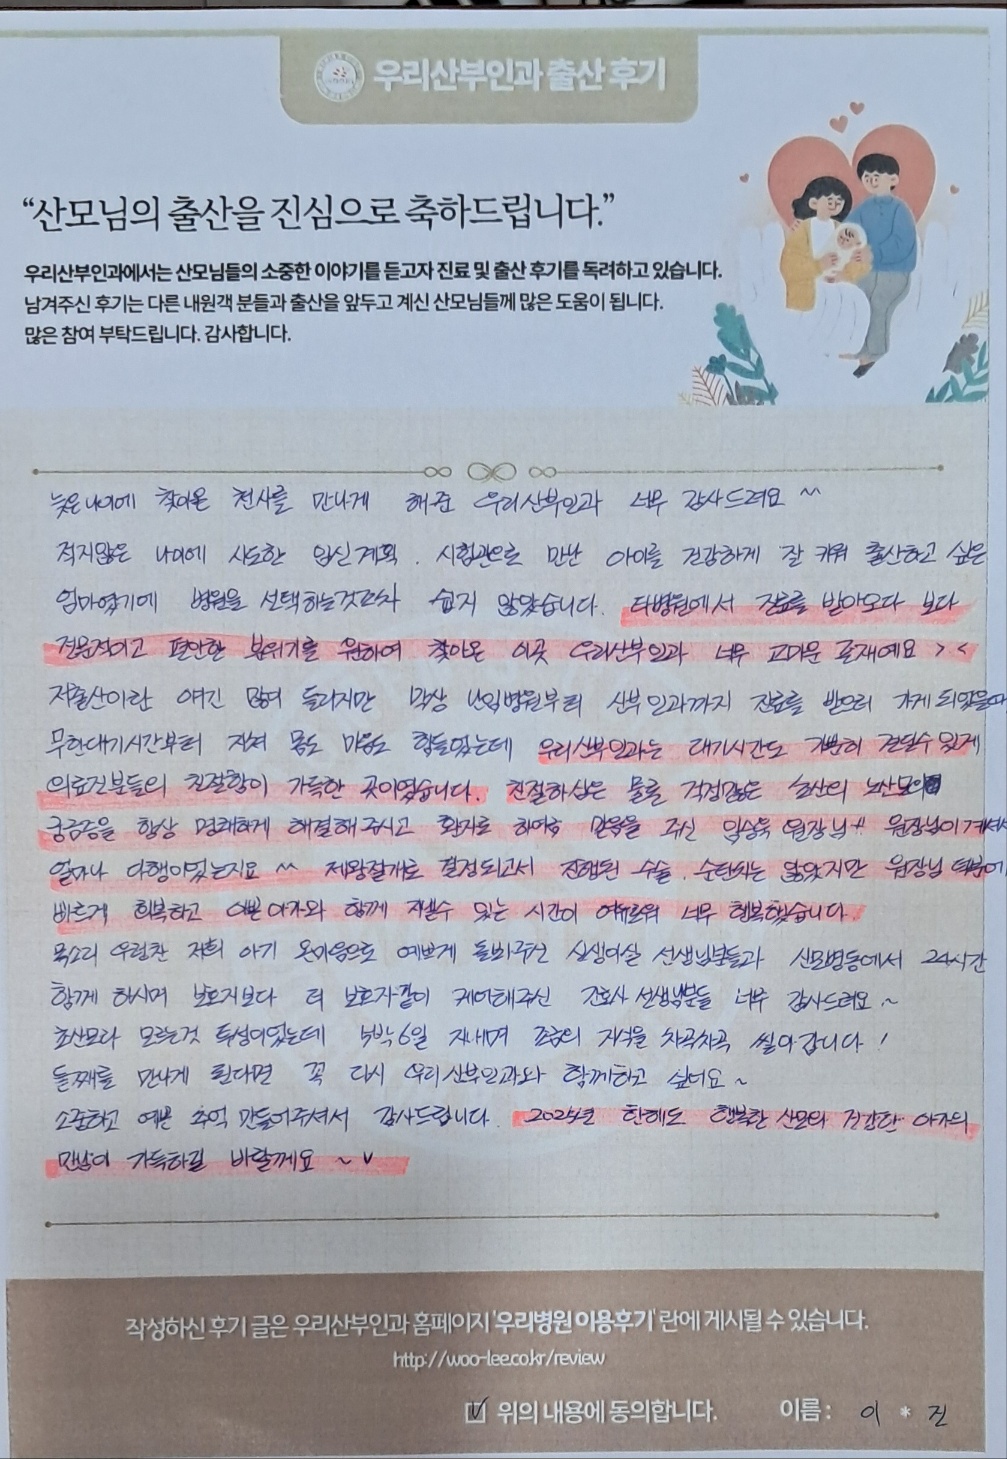 우리산부인과 출산 후기
“산모님의 출산을 진심으로 축하드립니다.”
우리산부인과에서는 산모님들의 소중한 이야기를 듣고자 진료 및 출산 후기를 독려하고 있습니다.
남겨주신 후기는 다른 내원객 분들과 출산을 앞두고 계신 산모님들께 많은 도움이 됩니다.
많은 참여 부탁드립니다. 감사합니다.
늦은 나이에 찾아온 천사를 만나게 해준 우리산부인과 너무 감사드려요 ^^
적지않은 나이에 시도한 임신계획. 시험관으로 만난 아이를 건강하게 잘 키워 출산하고 싶은
엄마였기에 병원을 선택하는것조차 쉽지 않았습니다. 타병원에서 진료를 받아오다 보다
전문적이고 편안한 분위기를 원하여 찾아온 이곳 우리산부인과 너무 고마운 존재예요 > <
저출산이란 여긴 많이 들리지만 막상 난임병원부터 산부인과까지 진료를 받으러 가게 되었을때
무한대기시간부터 지쳐 몸도 마음도 힘들었는데 우리산부인과는 대기시간도 가뿐히 견딜수 있게
의료진분들의 친절함이 가득한 곳이었습니다. 친절하심은 물론 걱정많은 노산의 노산모의
궁금증을 항상 명쾌하게 해결해 주시고 환자로 하여금 믿음을 주신 임상욱 원장님!! 원장님이 계셔서
얼마나 다행이었는지요 ^^ 제왕절개로 결정되고서 진행된 수술. 순탄치는 않았지만 원장님 덕분에
빠르게 회복하고 이쁜 아가와 함께 지낼수 있는 시간이 여유로워 너무 행복했습니다.
목소리 우렁찬 저희 아기 온마음으로 예쁘게 돌봐주신 신생아실 선생님분들과 산모병동에서 24시간
함께 하시며 보호자보다 더 보호자같이 케어해주신 간호사 선생님분들 너무 감사드려요 ~
초산모라 모르는것 투성이었는데 5박6일 지내며 조금의 지식을 차곡차곡 쌓아갑니다 !
둘째를 만나게 된다면 꼭 다시 우리산부인과와 함께하고 싶네요 ~
소중하고 예쁜 추억 만들어주셔서 감사드립니다. 2025년 한해도 행복한 산모와 건강한 아가의
만남이 가득하길 바랄께요 ~ v
작성하신 후기 글은 우리산부인과 홈페이지 '우리병원 이용후기' 란에 게시될 수 있습니다.
http://woo-lee.co.kr/review
위의 내용에 동의합니다. 이름 : 이 * 진